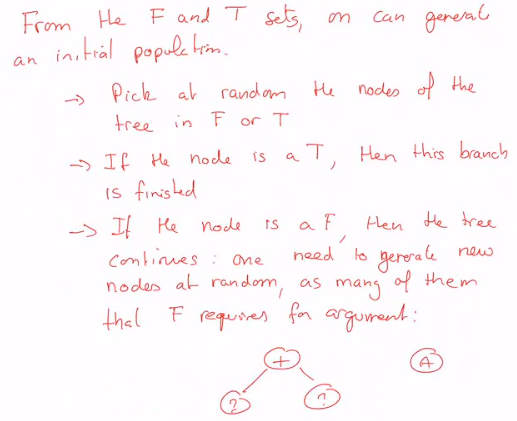 From the F and T sets, on can general
an initial population.
→ Pick at random the nodes of the
tree in F or T
→ If the node is a T, then this branch
is finished
→ If the node is a F, then the tree
continues : one need to generate new
nodes at random, as many of them
that F requires for argument :
+ A
? ?